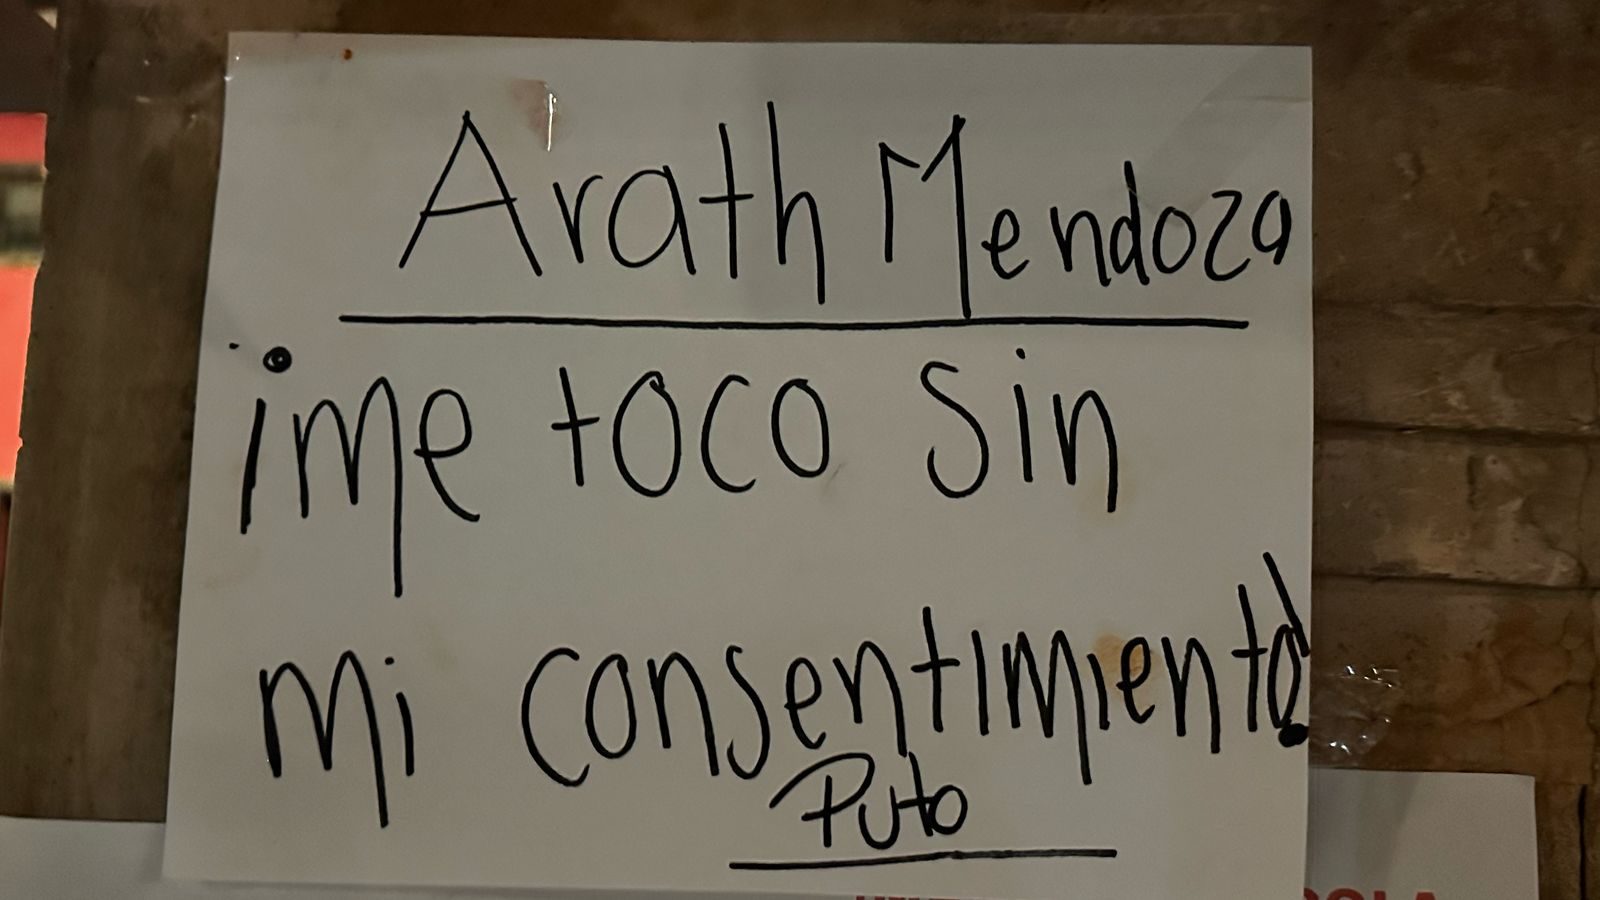 Arath Mendoza
¡me toco sin
mi consentimiento!
Puto